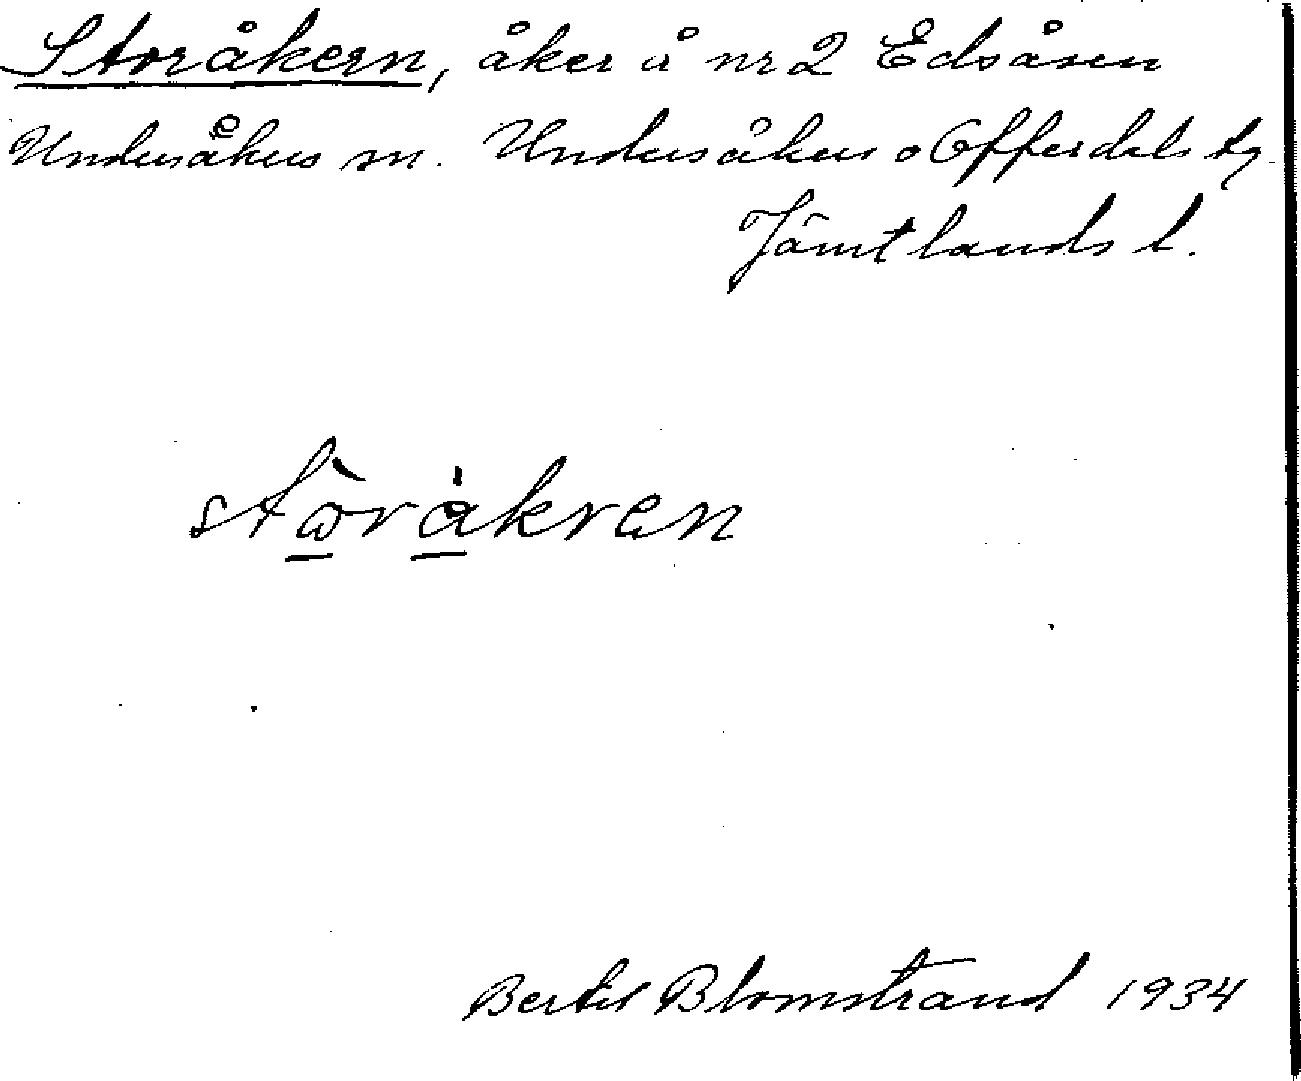 Storåkern, åker å nr 2 Edsåsen
Undersåkers sn. Undersåkers o Offerdals tg
Jämtlands l.
stòråkren
Bertil Blomstrand 1934